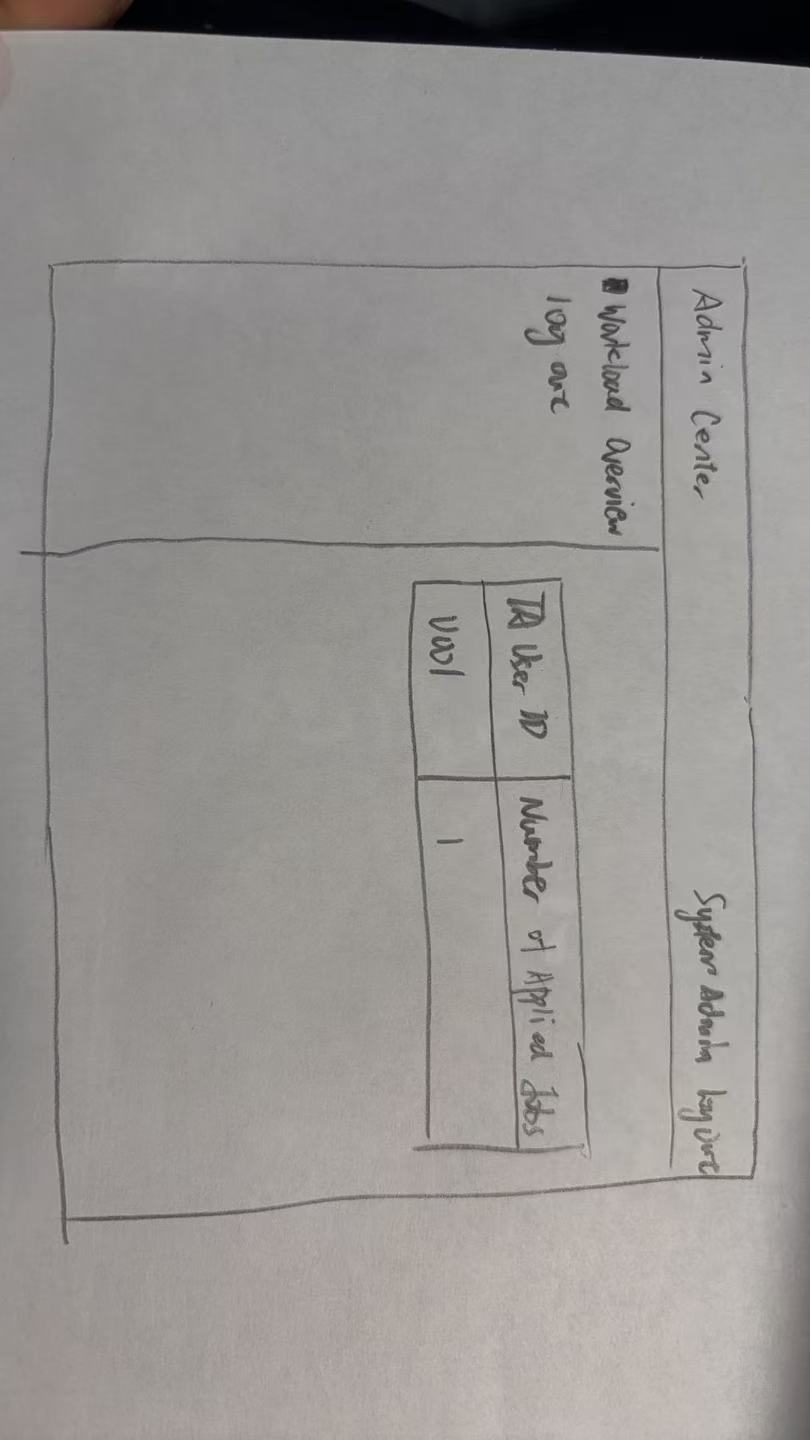 Admin Center
System Admin Log out
Workload Overview
log out
TA User ID
Number of Applied Jobs
U001
1